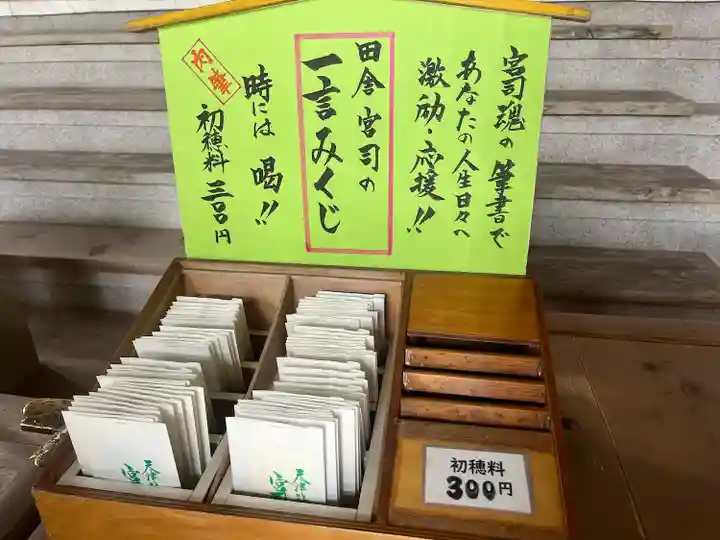 宮司魂の筆書で
あなたの人生日々へ
激励・応援!!
田舎宮司の
一言みくじ
時には喝!!
肉筆
初穂料三百円
初穂料
300円